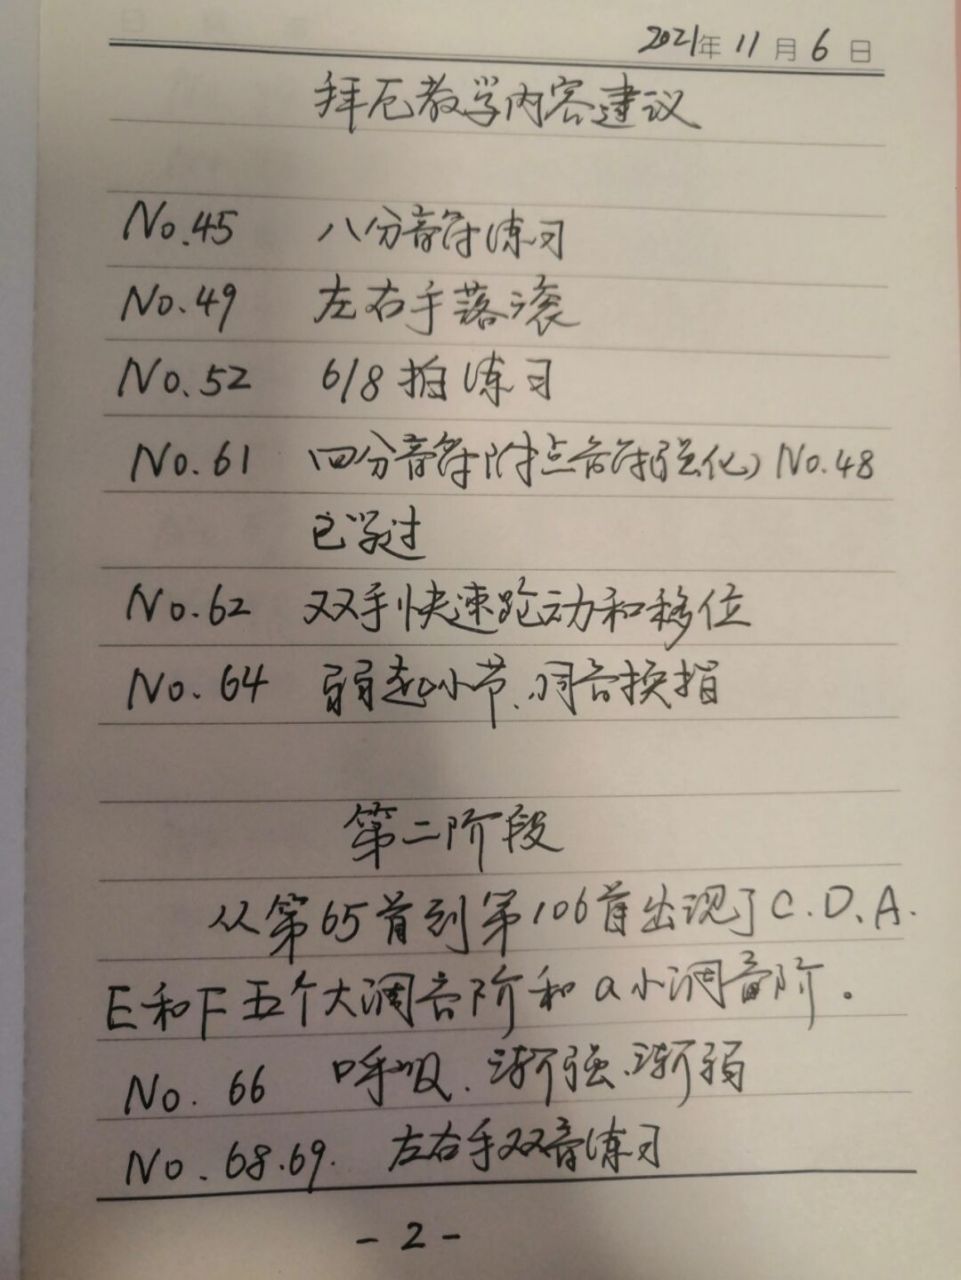 2021年11月6日
拜厄教学内容建议
No.45 八分音符练习
No.49 左右手落滚
No.52 6/8拍练习
No.61 四分音符附点音符(强化) No.48
已学过
No.62 双手快速跑动和移位
No.64 弱起小节、同音换指
第二阶段
从第65首到第106首出现了C.D.A.
E和F五个大调音阶和a小调音阶.
No.66 呼吸、渐强、渐弱
No.68.69. 左右手双音练习
-2-